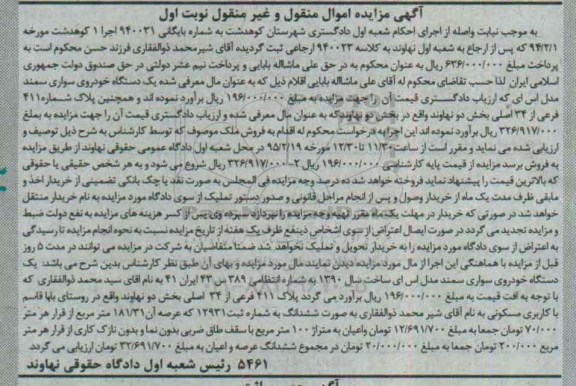 آگهی مزایده اموال منقول و غیر منقول نوبت اول
به موجب نیابت واصله از اجرای احکام شعبه اول دادگستری شهرستان کوهدشت به شماره بایگانی ۹۴۰۰۳۱ اجرا ۱ کوهدشت مورخه
۹۴/۲/۱ که پس از ارجاع به شعبه اول نهاوند به کلاسه ۹۴۰۰۲۳ ارجاعی ثبت گردیده آقای شیرمحمد ذوالفقاری فرزند حسن محکوم است به
پرداخت مبلغ ۶۳۶/۰۰۰/۰۰۰ ریال به عنوان محکوم به در حق علی ماشااله بابایی و پرداخت نیم عشر دولتی در حق صندوق دولت جمهوری
اسلامی ایران لذا حسب تقاضای محکوم له آقای علی ماشااله بابایی اقلام ذیل که به عنوان مال معرفی شده یک دستگاه خودروی سواری سمند
مدل اس ای که ارزیاب دادگستری قیمت آن را جهت مزایده به مبلغ ۱۹۶/۰۰۰/۰۰۰ ریال برآورد نموده اند و همچنین پلاک شماره ۴۱۱
فرعی از ۳۴ اصلی بخش دو نهاوند واقع در بخش دو نهاوند که به عنوان مال معرفی شده و ارزیاب دادگستری قیمت آن را جهت مزایده به مبلغ
۳۲۶/۹۱۷/۰۰۰ ریال برآورد نموده اند این اجرا به درخواست محکوم له اقدام به فروش ملک موصوف که توسط کارشناس به شرح ذیل توصیف و
ارزیابی شده می نماید و مقرر است از ساعت ۱۱/۳۰ تا ۱۲/۳۰ مورخه ۹۵/۲/۱۹ در محل شعبه اول دادگاه عمومی حقوقی نهاوند از طریق مزایده
به فروش برسد مزایده از قیمت پایه کارشناسی ۱۹۶/۰۰۰/۰۰۰ ریال ۲- ۳۲۶/۹۱۷/۰۰۰ ریال شروع می شود و به هر شخص حقیقی یا حقوقی
که بالاترین قیمت را پیشنهاد نماید فروخته خواهد شد ده درصد وجه مزایده فی المجلس به صورت نقد یا چک بانکی تضمینی از خریدار اخذ و
مابقی ظرف مدت یک ماه از خریدار وصول و پس از انجام مراحل قانونی و صدور دستور تملیک از سوی دادگاه مورد مزایده به نام خریدار منتقل
خواهد شد در صورتی که خریدار در مهلت یک ماه مقرر بقیه وجه مزایده را نپردازد سپرده وی پس از کسر هزینه های مزایده به نفع دولت ضبط
و مزایده تجدید می گردد در صورت ایصال اعتراض از سوی اشخاص ذینفع ظرف یک هفته از تاریخ مزایده نسبت به نحوه انجام مزایده تا رسیدگی
به اعتراض از سوی دادگاه مورد مزایده را به خریدار تحویل و تملیک نخواهد شد ضمنا متقاضیان به شرکت در مزایده می توانند در مدت ۵ روز
قبل از مزایده با هماهنگی این اجرا از مال مورد مزایده دیدن نمایند مال مورد مزایده و بهای آن طبق نظر کارشناس بدین شرح می باشد: یک
دستگاه خودروی سواری سمند مدل اس ای ساخت سال ۱۳۹۰ به شماره انتظامی ۳۸۹ س ۴۳ ایران ۴۱ به نام آقای سید محمد ذوالفقاری که
با توجه به افت قیمت به مبلغ ۱۹۶/۰۰۰/۰۰۰ ریال برآورد می گردد پلاک ۴۱۱ فرعی از ۳۴ اصلی بخش دو نهاوند واقع در روستای بابا قاسم
با کاربری مسکونی به نام آقای شیر محمد ذوالفقاری به صورت ششدانگ به شماره ثبت ۱۲۹۳۱ که عرصه آن ۱۸۱/۳۱ متر مربع از قرار هر متر
۷۰/۰۰۰ تومان جمعا به مبلغ ۱۲/۶۹۱/۷۰۰ تومان واعیان به متراژ ۱۰۰ متر مربع با سقف طاق ضربی بدون نما و بدون نازک کاری از قرار هر متر
مربع ۲۰۰/۰۰۰ تومان جمعا به مبلغ ۲۰/۰۰۰/۰۰۰ تومان در مجموع ششدانگ عرصه و اعیان به مبلغ ۳۲/۶۹۱/۷۰۰ تومان ارزیابی می گردد.
۵۴۶۱ رئیس شعبه اول دادگاه حقوقی نهاوند